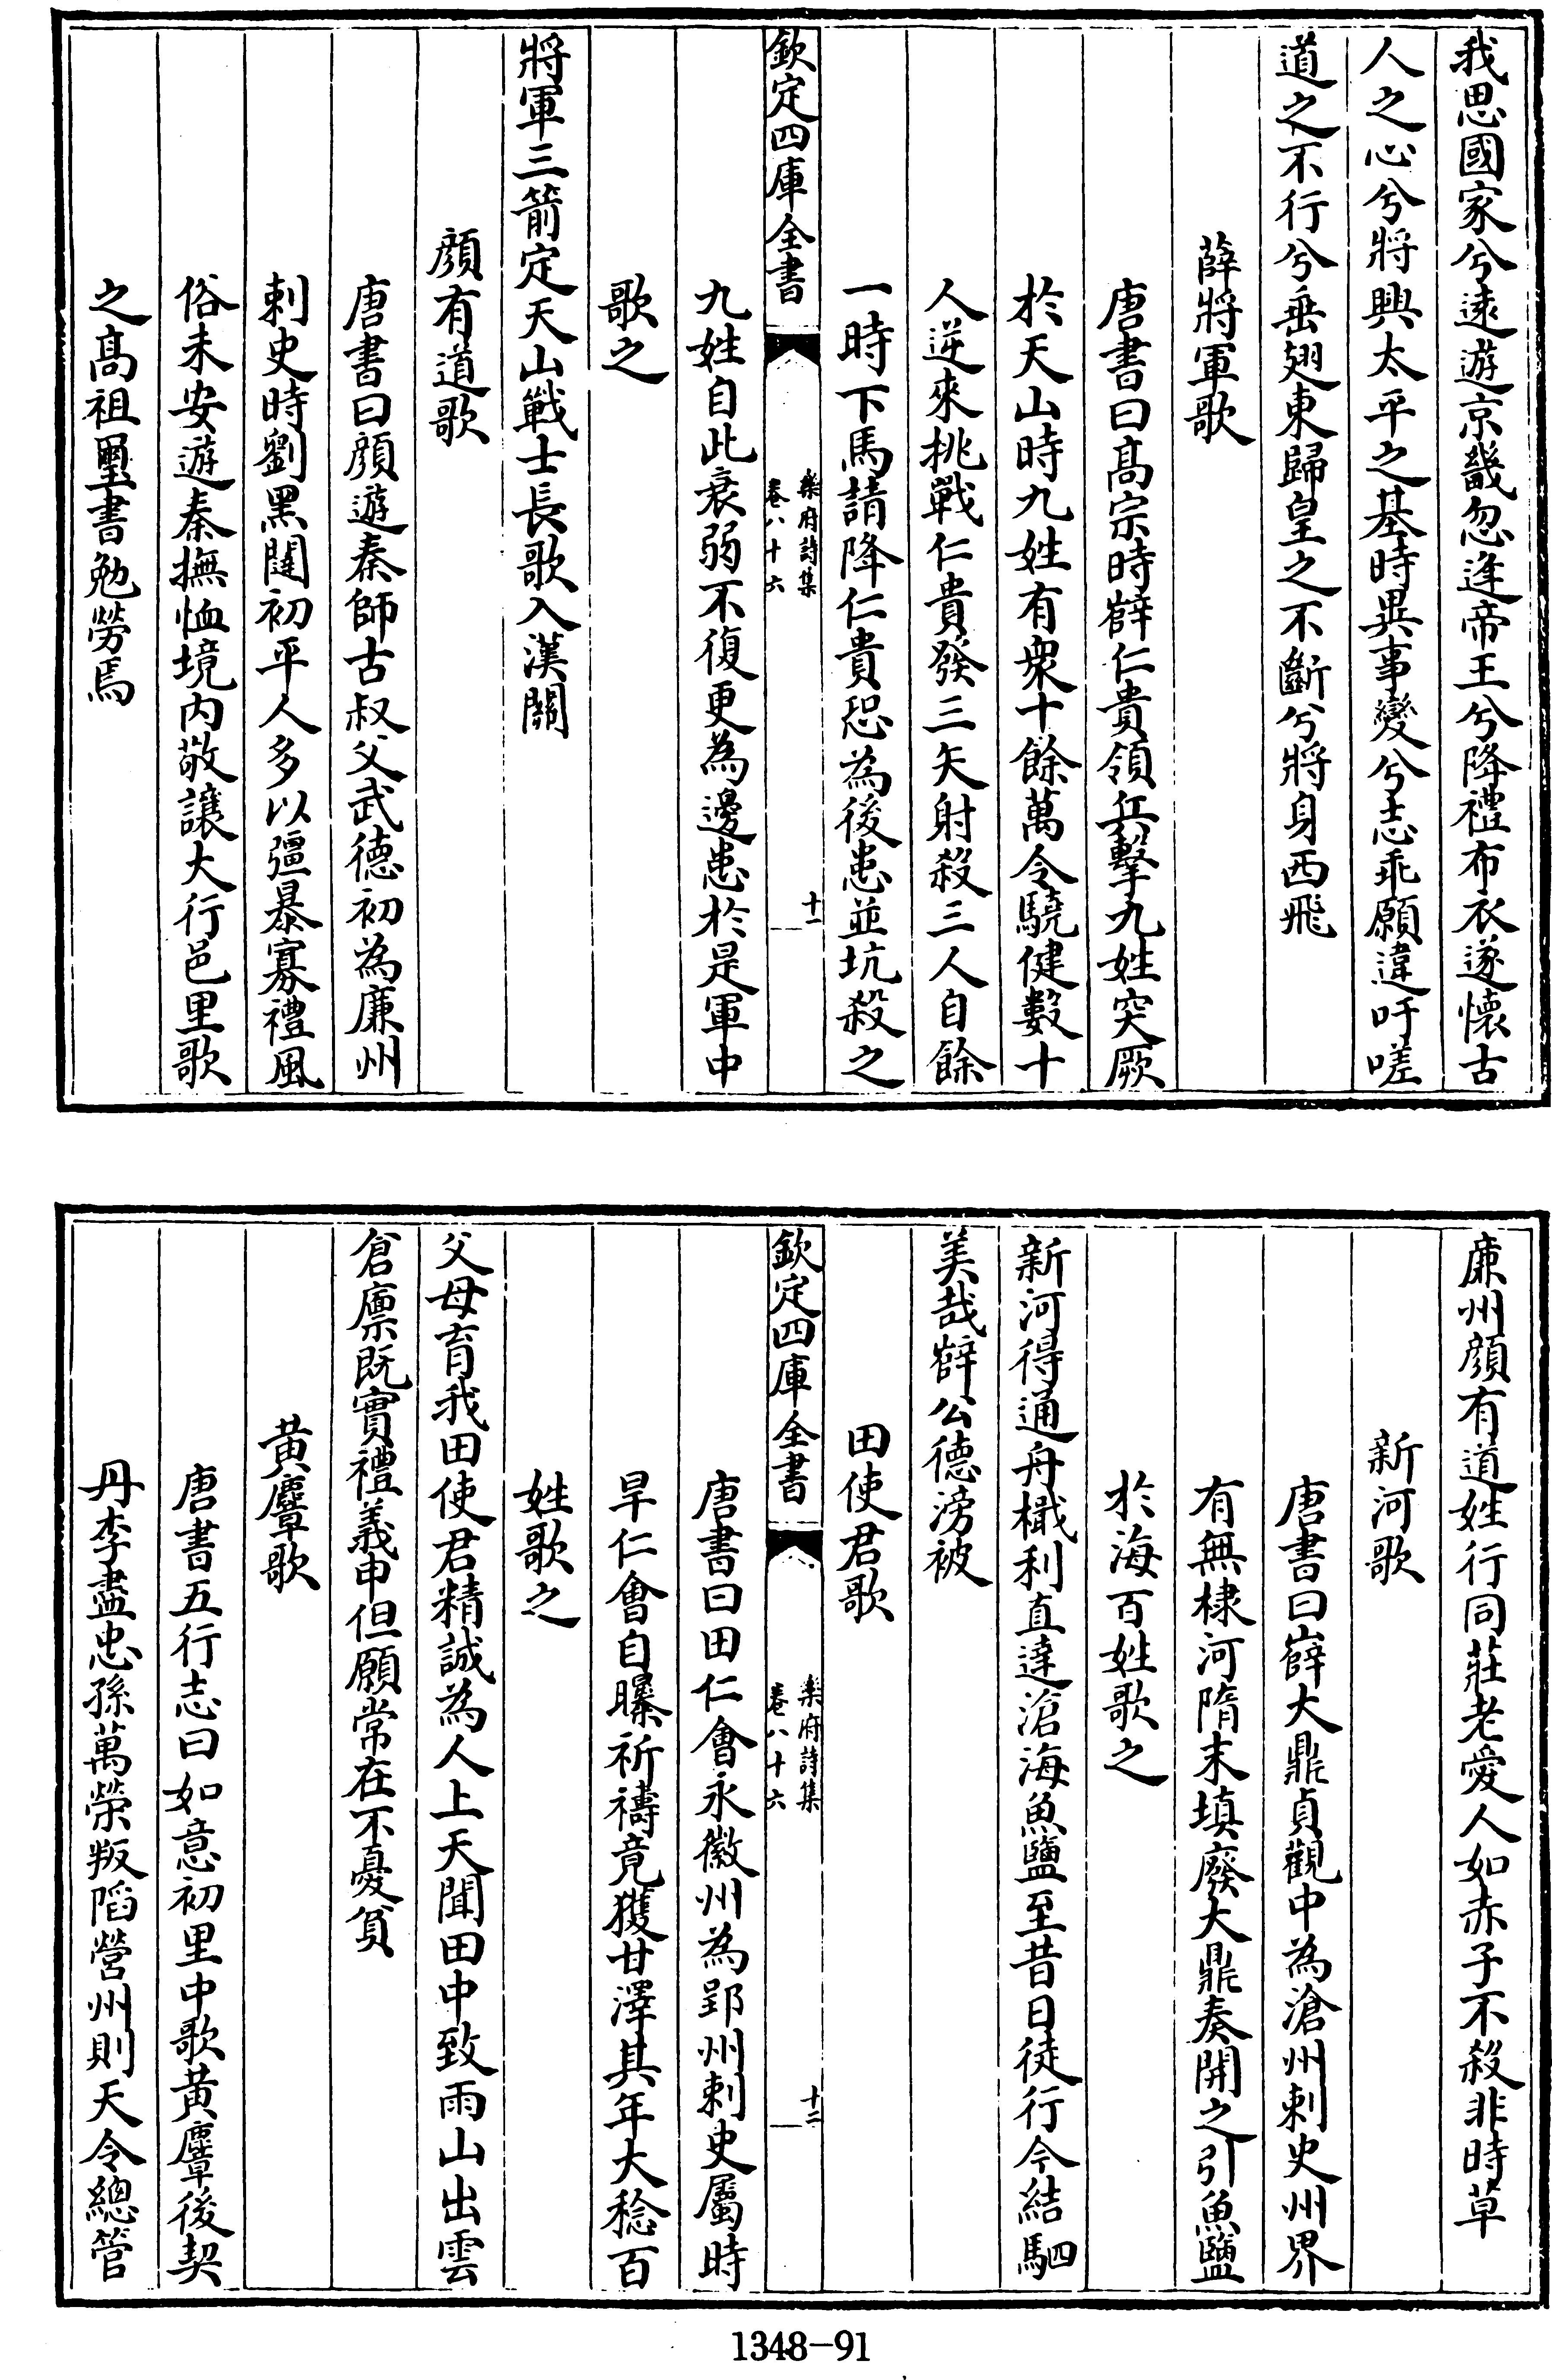 我思國家兮遠遊京畿忽逢帝王兮降禮布衣遂懷古
人之心兮將興太平之基時異事變兮志乖願違吁嗟
道之不行兮垂翅東歸皇之不斷兮將身西飛
薛將軍歌
唐書曰髙宗時薛仁貴領兵擊九姓突厥
於天山時九姓有衆十餘萬令驍健數十
人逆來挑戰仁貴發三矢射殺三人自餘
一時下馬請降仁貴恐為後患並坑殺之
欽定四庫全書
樂府詩集
卷八十六
十一
九姓自此衰弱不復更為邊患於是軍中
歌之
將軍三箭定天山戰士長歌入漢關
顔有道歌
唐書曰顔遊秦師古叔父武德初為廉州
刺史時劉黑闥初平人多以彊暴寡禮風
俗未安遊秦撫恤境内敬讓大行邑里歌
之髙祖璽書勉勞焉
廉州顔有道姓行同莊老愛人如赤子不殺非時草
新河歌
唐書曰薛大鼎貞觀中為滄州刺史州界
有無棣河隋末填廢大鼎奏開之引魚鹽
於海百姓歌之
新河得通舟檝利直達滄海魚鹽至昔日徒行今結駟
美哉薛公德滂被
田使君歌
欽定四庫全書
樂府詩集
卷八十六
十二
唐書曰田仁會永徽州為郢州刺史屬時
旱仁會自曝祈禱竟獲甘澤其年大稔百
姓歌之
父母育我田使君精誠為人上天聞田中致雨山出雲
倉廪既實禮義申但願常在不憂貧
黄麞歌
唐書五行志曰如意初里中歌黄麞後契
丹李盡忠孫萬榮叛陷營州則天令總管
1348-91